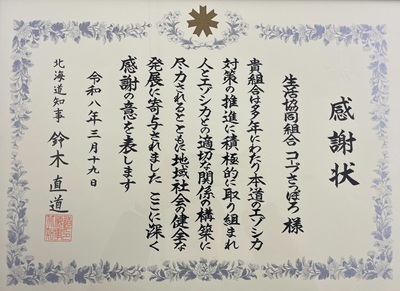 感謝状
生活協同組合 コープさっぽろ 様
貴組合は多年にわたり本道のエゾシカ
対策の推進に積極的に取り組まれ
人とエゾシカとの適切な関係の構築に
尽力されるとともに地域社会の健全な
発展に寄与されました ここに深く
感謝の意を表します
令和八年三月十九日
北海道知事 鈴木 直道